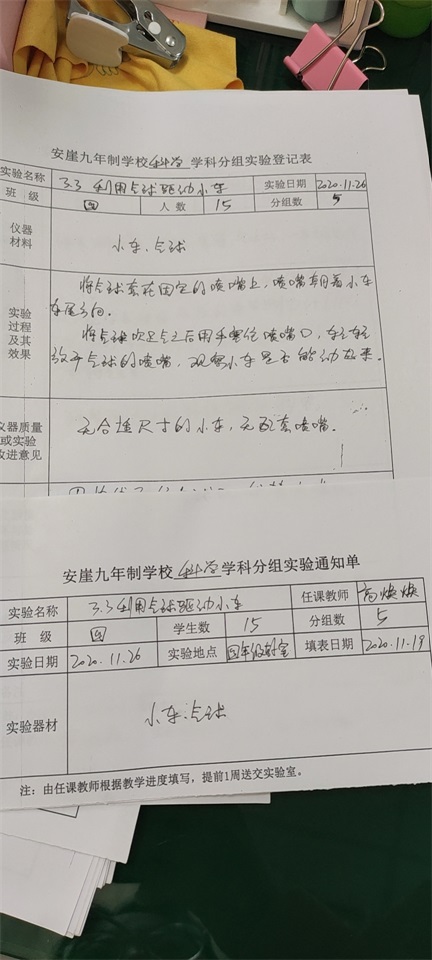 安崖九年制学校 科学 学科分组实验登记表
实验名称 3.3 利用气球驱动小车 实验日期 2020.11.26
班 级 四 人 数 15 分组数 5
仪器
材料
小车、气球
实验
过程
及其
效果
将气球套在固定的喷嘴上,喷嘴朝着小车
车尾方向。
将气球吹足气之后用手堵住喷嘴口,轻轻
放开气球的喷嘴,观察小车是否能动起来。
仪器质量
或实验
改进意见
无合适尺寸的小车,无配套喷嘴。
安崖九年制学校 科学 学科分组实验通知单
实验名称 3.3利用气球驱动小车 任课教师 高焕焕
班 级 四 学生数 15 分组数 5
实验日期 2020.11.26 实验地点 四年级教室 填表日期 2020.11.19
实验器材 小车、气球
注:由任课教师根据教学进度填写,提前1周送交实验室。